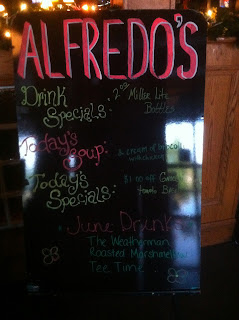 ALFREDO'S
Drink Specials: 2 Miller Lite Bottles
Today's Soup: & cream of broccoli with cheese
Today's Specials: $1.00 off
June Drinks
The Weatherman
Roasted Marshmellow
Tee Time